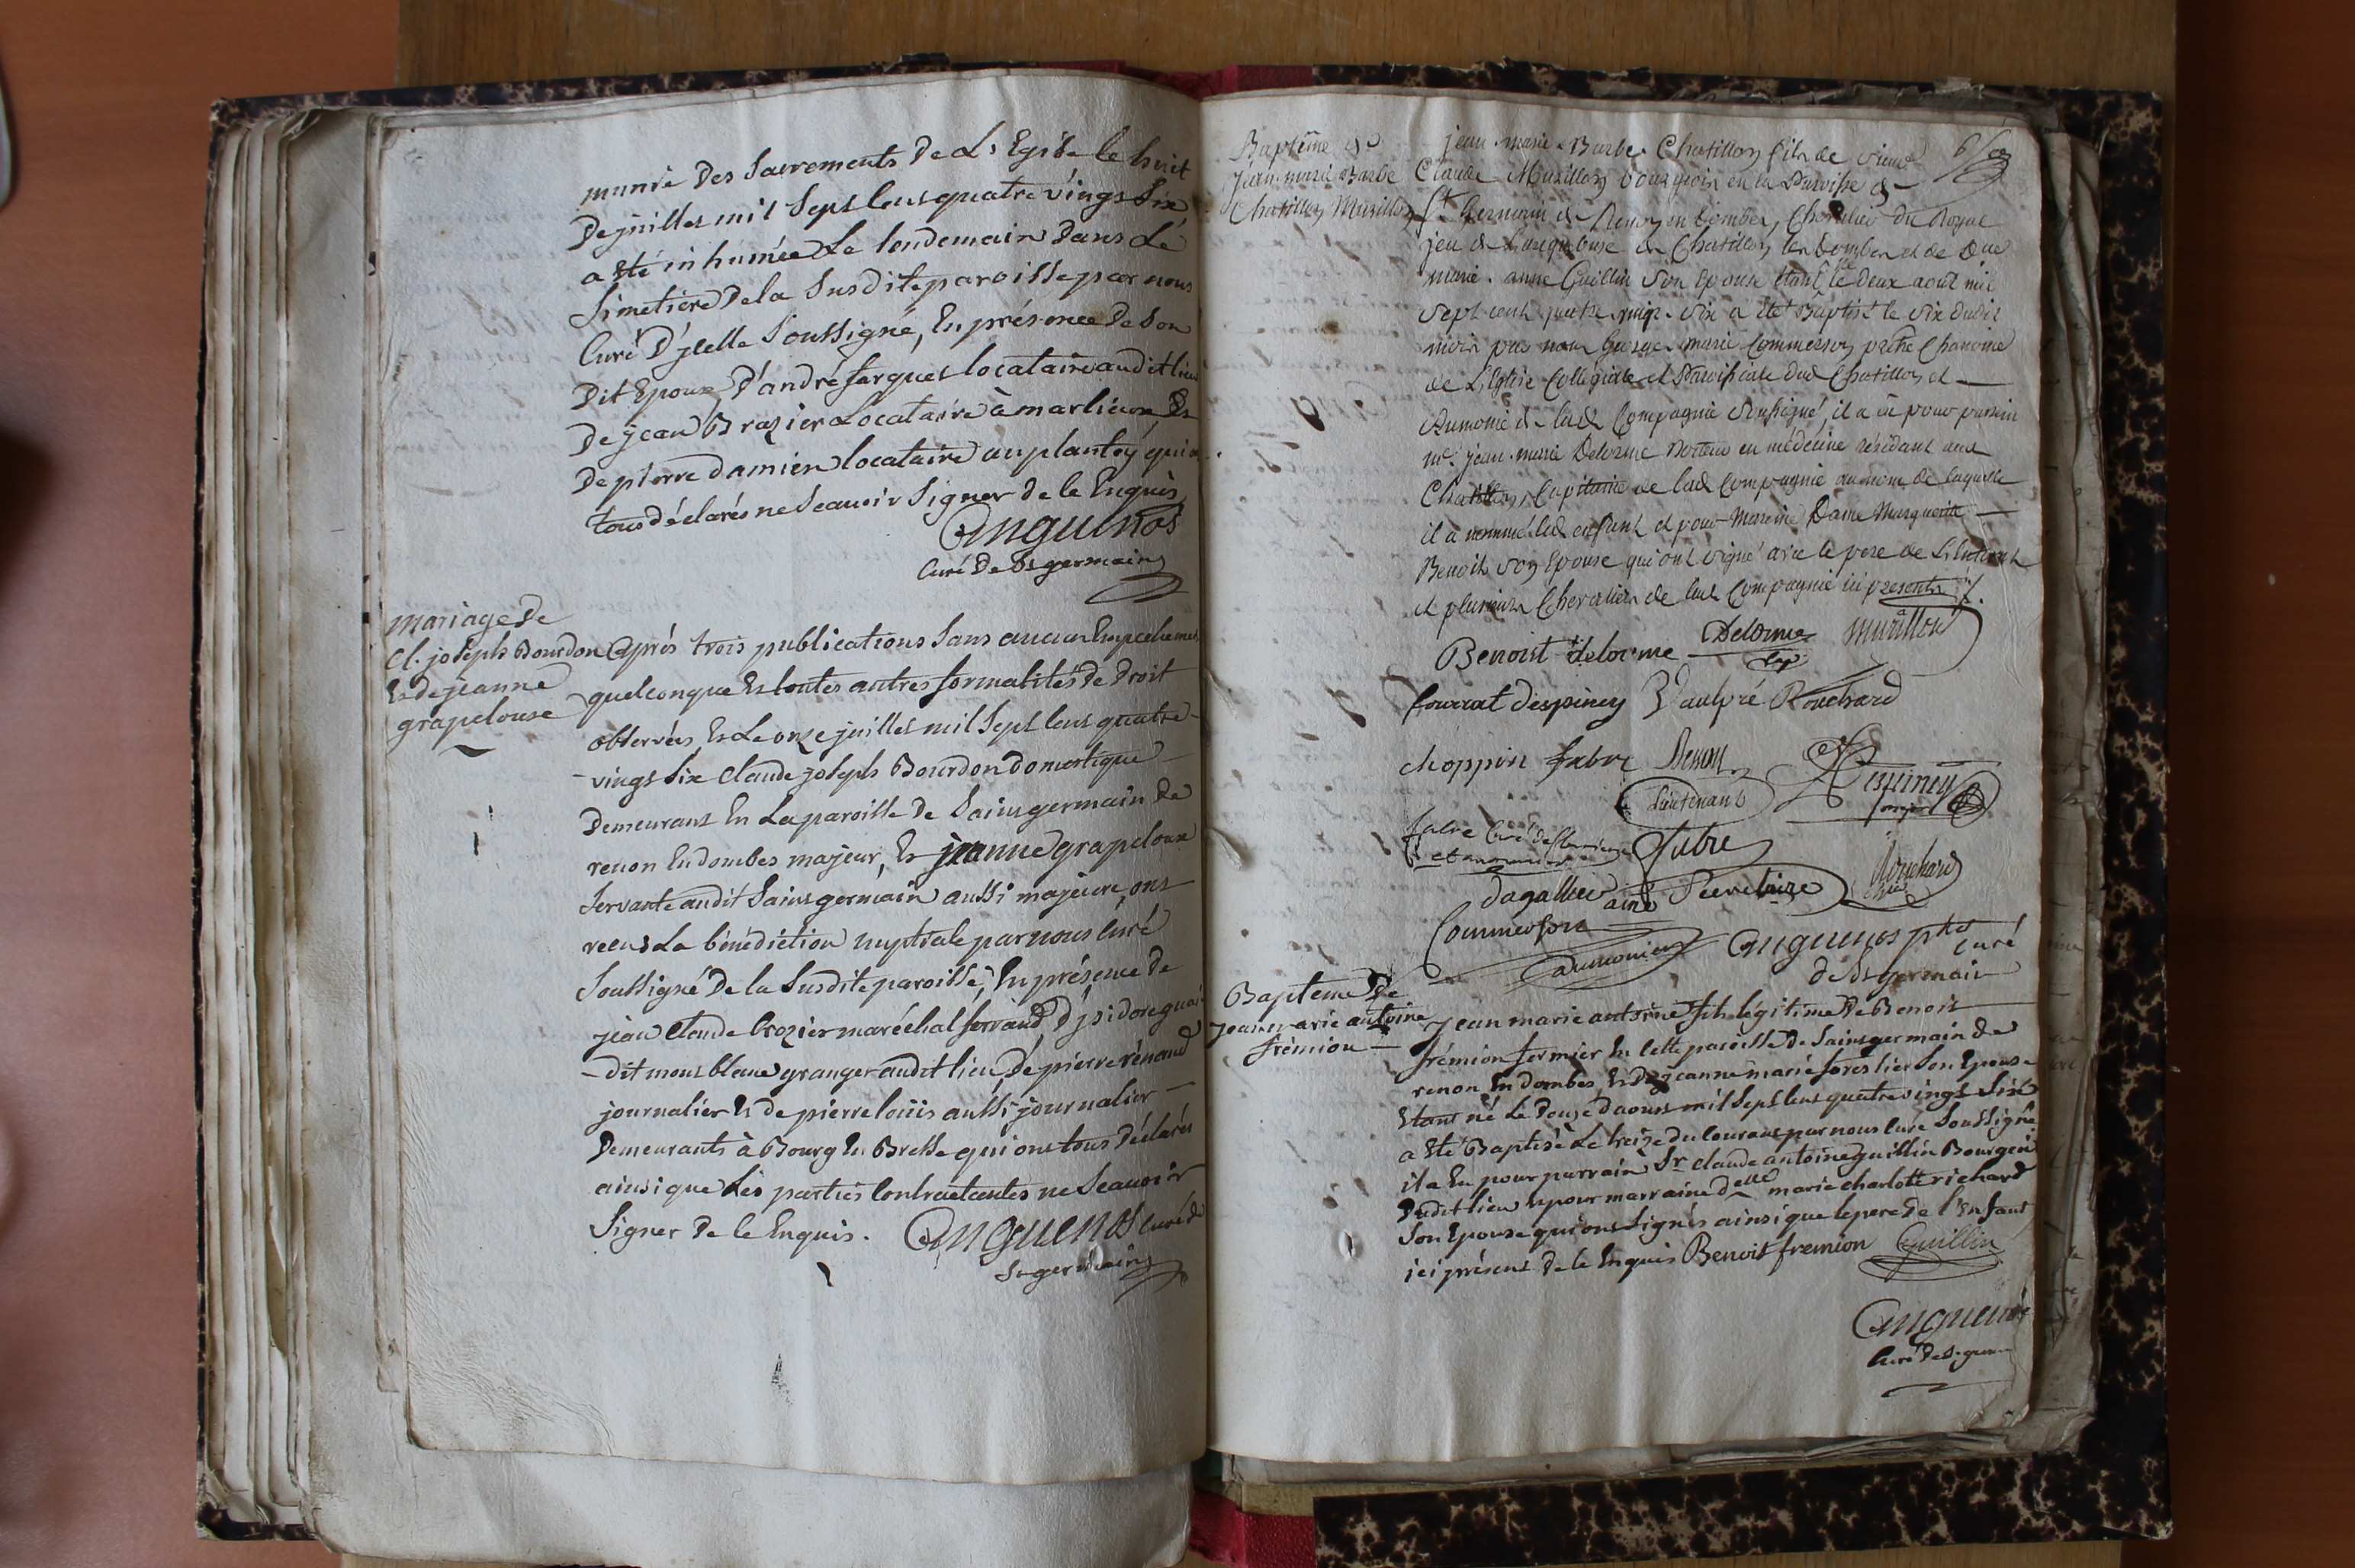 munie Des Sacrements De L'Eglise le huit
De juillet mil Sept Cens quatre vings Six
a Eté inhumée Le lendemain Dans Le
Simetiere De la Susdite paroisse par nous
Curé D'jcelle Soussigné, En présence de Son
Dit Epoux, D'andré farques locataire audit lieu
De jean Brazier Locataire à marlieux Et
De pierre damien locataire au plantey qui
tous déclarés ne Scauoir Signer de ce Enquis
Anguenos
Curé De St germain
mariage De
Cl. joseph Bourdon
Et de jeanne
grapelouse
Après trois publications Sans aucun Empechement
quelconque Et toutes autres formalités De Droit
observées Et Le onze juillet mil Sept Cens quatre
vings Six Claude joseph Bourdon Domestique
Demeurant En La paroisse De Saint germain De
renon En dombes majeur, Et jeanne grapeloux
Servante audit Saint germain aussi majeure, ont
recus La bénédiction nuptiale par nous Curé
Soussigné De la Susdite paroisse, En présence de
jean Claude Crozier maréchal ferrand, D'jsidore
dit mont blanc granger audit lieu De pierre renaud
journalier Et de pierre loüis aussi journalier
Demeurants à Bourg En Bresse qui ont tous Déclarés
ainsi que Les parties Contractantes ne Scauoir
Signer De ce Enquis. Anguenos curé de
St germain
Baptême de
Jean marie Barbe
Chatillon Muzillon
jean marie Barbe Chatillon fils de sieur
Claude Muzillon bourgeois en la Paroisse de
St Germain de Renon en Dombes, Chevalier du Royal
jeu de L'arquebuse de Chatillon les Dombes et de Dne
marie anne Guillin son Epouse étant né le deux août mil
sept cent quatre vingt six a été Baptisé le six dudit
mois par nous George marie Commerson prêtre Chanoine
de L'Eglise Collegiale et Paroissiale dud Chatillon et
Aumonier de lad Compagnie Soussigné, il a eû pour parrein
mr. jean marie Delorme Docteur en médecine résidant aud
Chatillon, Capitaine de lad Compagnie au nom de laquelle
il a nommé led enfant et pour Marreine Dame Marguerite
Benoit son Epouse qui ont signé avec le pere de L'Enfant
et plusieurs Chevaliers de lad Compagnie ici présents
Benoist delorme Delorme Muzillon
Cap
Courrat despiney Vaulpré Rouchard
choppin fabre
Lieutenant
fabre Curé
Fabre
Dagallier ainé Secretaire Rouchard
Commerson
aumonier
Anguenos ptre
Curé
de St germain
Bapteme De
Jean marie antoine
frémion
Jean marie antoine fils légitime De Benoit
frémion fermier En Cette paroisse De Saint germain De
renon En dombes, Et De jeanne marie forestier Son Epouse
Etant né Le Douze D'aoust mil Sept Cens quatre vings Six
a Eté Baptisé Le treize du Courant par nous Curé Soussigné
il a Eu pour parrain Sr. claude antoine guillin Bourgeois
Dudit lieu Et pour marraine Delle marie charlotte richard
Son Epouse qui ont Signés ainsi que le pere De l'Enfant
ici présent De ce Enquis Benoit fremion Guillin
Anguenos
Curé De St germain